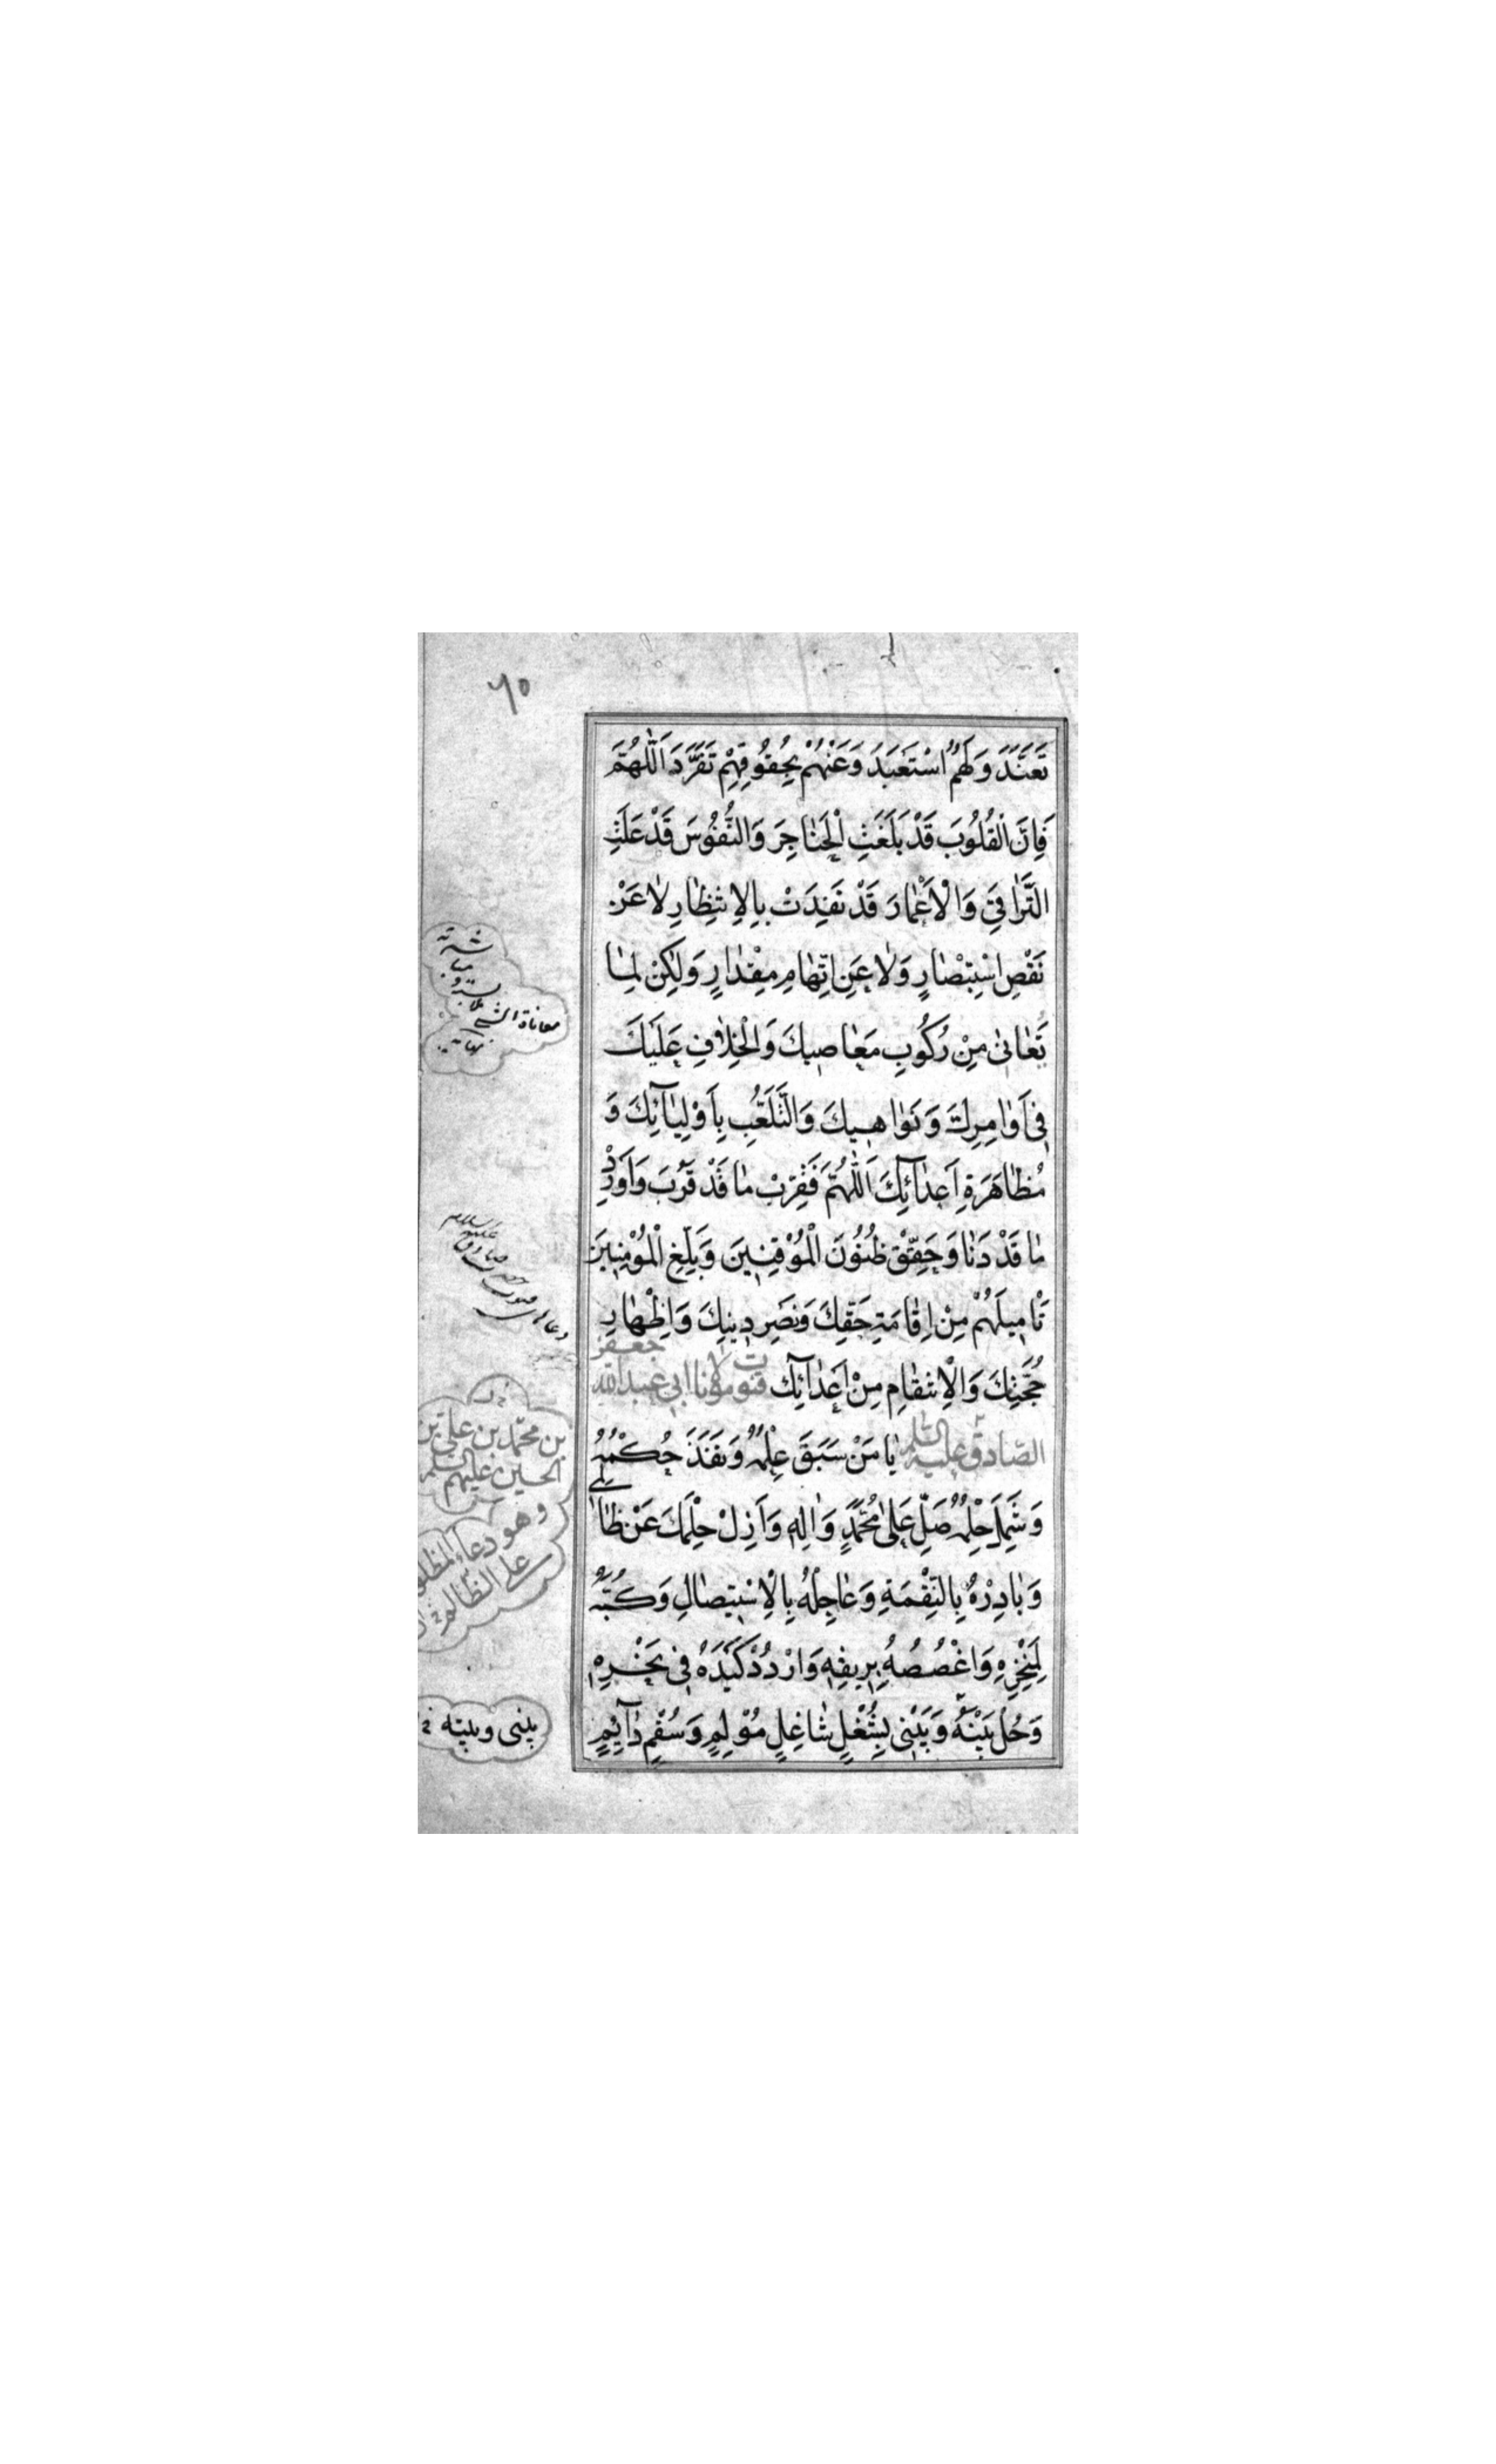 ٦٥
تَعَنَّدَ وَلَهُمُ اسْتَعْبَدَ وَعَنْهُمْ بِحُقُوقِهِمْ تَفَرَّدَ اَللّٰهُمَّ
فَاِنَّ الْقُلُوبَ قَدْ بَلَغَتِ الْحَنَاجِرَ وَالنُّفُوسَ قَدْ عَلَتِ
التَّرَاقِيَ وَالْاَعْمَارَ قَدْ نَفِدَتْ بِالْاِنْتِظَارِ لَا عَنْ
نَقْصِ اسْتِبْصَارٍ وَلَا عَنِ اتِّهَامِ مِقْدَارٍ وَلٰكِنْ لِمَا
تُعَانِيٰ مِنْ رُكُوبِ مَعَاصِيكَ وَالْخِلَافِ عَلَيْكَ
فِي اَوَامِرِكَ وَنَوَاهِيكَ وَالتَّلَعُّبِ بِاَوْلِيَائِكَ وَ
مُظَاهَرَةِ اَعْدَائِكَ اَللّٰهُمَّ فَقَرِّبْ مَا قَدْ قَرُبَ وَاَوْرِدْ
مَا قَدْ دَنَا وَحَقِّقْ ظُنُونَ الْمُوْقِنِينَ وَبَلِّغِ الْمُؤْمِنِينَ
تَأْمِيلَهُمْ مِنْ اِقَامَةِ حَقِّكَ وَنَصْرِ دِينِكَ وَاِظْهَارِ
حُجَّتِكَ وَالْاِنْتِقَامِ مِنْ اَعْدَائِكَ قنوت مولانا ابي عبدالله جعفر
الصّادق عليه السّلم يَا مَنْ سَبَقَ عِلْمُهُ وَنَفَذَ حُكْمُهُ
وَشَمِلَ حِلْمُهُ صَلِّ عَلَىٰ مُحَمَّدٍ وَاٰلِهِ وَاَزِلْ حِلْمَكَ عَنْ ظَالِمِي
وَبَادِرْهُ بِالنَّقِمَةِ وَعَاجِلْهُ بِالْاِسْتِيصَالِ وَكُبَّهُ
لِمَنْخِرِهِ وَاغْصُصْهُ بِرِيقِهِ وَارْدُدْ كَيْدَهُ فِي نَحْرِهِ
وَحُلْ بَيْنَهُ وَبَيْنِي بِشُغْلٍ شَاغِلٍ مُوْلِمٍ وَسُقْمٍ دَائِمٍ
معاناة الشئ
دعاى قنوت حضرت صادق عليه السلام
بن محمّد بن علي بن
الحسين عليهم السلم
وهو دعاء المظلوم
على الظالم
بيني وبينه